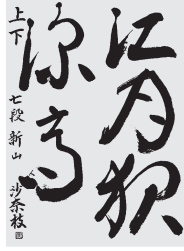 江月
深高
上下
七段 新山 沙奈枝